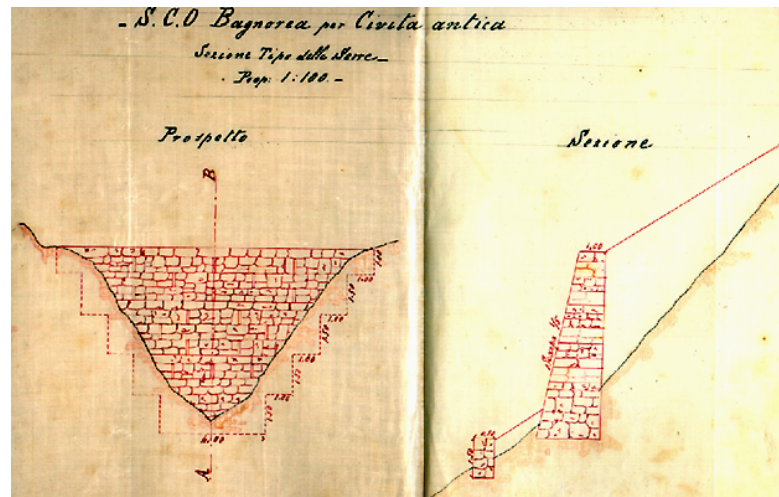 - S.C.O Bagnorea per Civita antica
Sezione Tipo delle Serre -
- Prop: 1:100. -
Prospetto
Sezione
B
1,00
1,00
1,50
1,00
1,50
1,00
1,00
A
1,00
Scarpa 1/5